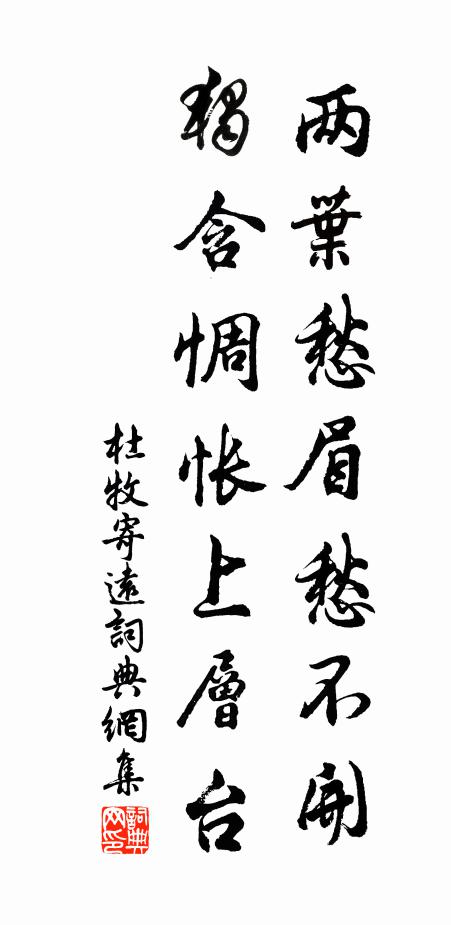 两葉愁眉愁不開
獨含惆悵上層台
杜牧寄遠詞典網集
詞典网印